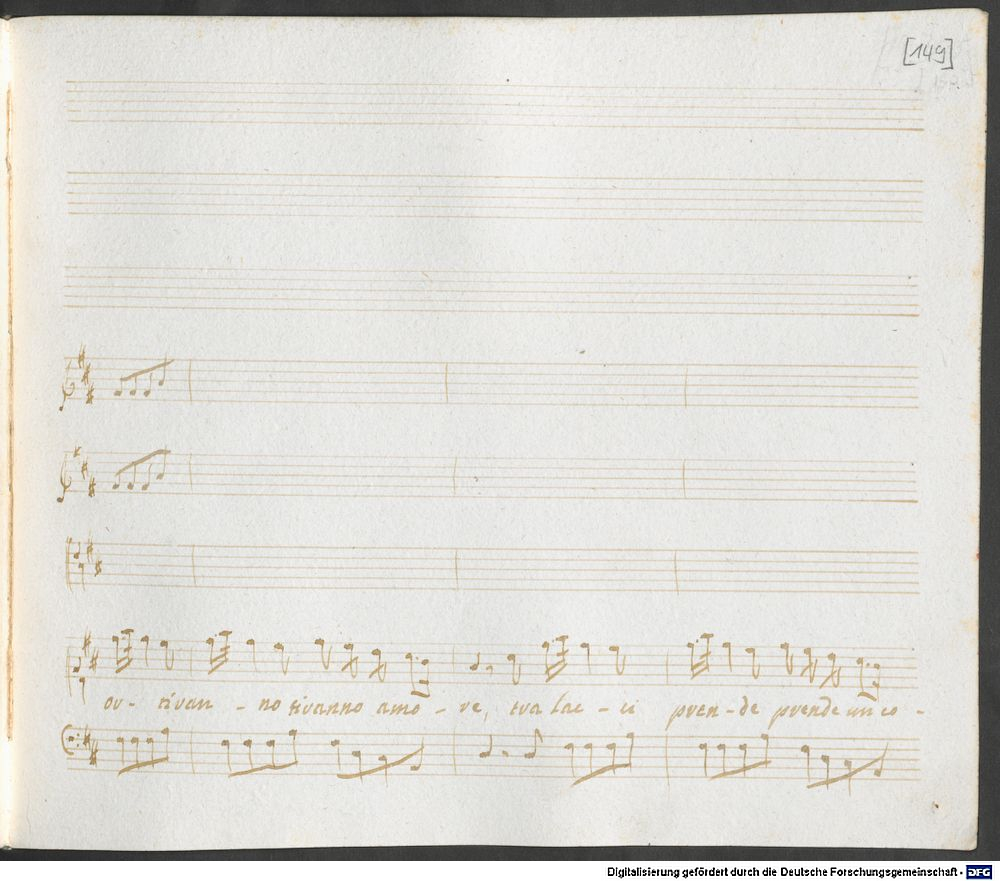 [149]
ov - tivan - no tivanno amo - ve, tra lac - ci pren - de prende un co -
Digitalisierung gefördert durch die Deutsche Forschungsgemeinschaft - DFG